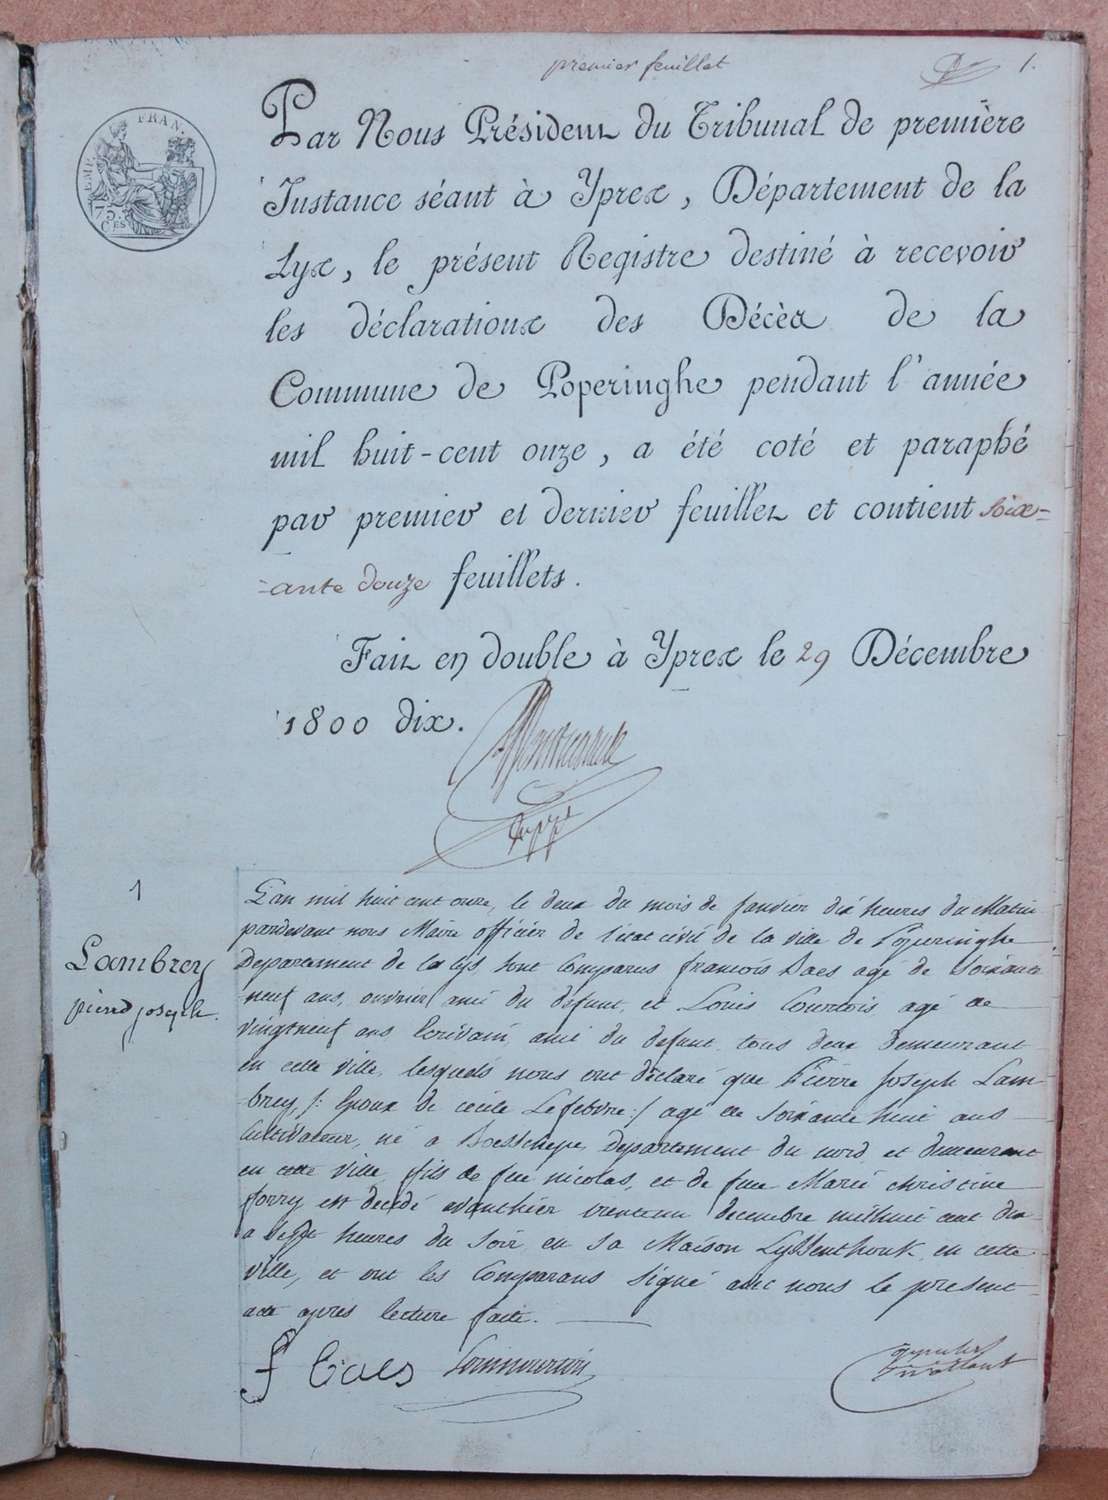 premier feuillet
1.
FRAN.
75
CES
Par Nous Président du Tribunal de première
Instance séant à Ypres, Département de la
Lys, le présent Registre destiné à recevoir
les déclarations des Décès de la
Commune de Poperinghe pendant l'année
mil huit-cent onze, a été coté et paraphé
par premier et dernier feuillet et contient soix=
=ante douze feuillets.
Fait en double à Ypres le 29 Décembre
1800 dix.
1
Lambrey
pierre joseph.
L'an mil huit cent onze, le deux du mois de janvier dix heures du Matin
pardevant nous Maire officier de l'etat civil de la ville de Poperinghe
Departement de la lys, sont Comparus francois Baes agé de Soixante
neuf ans, ouvrier ami du defunt, et Louis Courtois agé de
vingtneuf ans Ecrivain, ami du defunt tous deux demeurant
en cette ville, lesquels nous ont déclaré que Pierre Joseph Lam
-brey /: Epoux de cecile Lefebvre :/ agé de Soixante huit ans
Cultivateur, né a Boesschepe departement du nord et demeurant
en cette ville, fils de feu nicolas, et de feue Marie christine
forry est decédé avanthier trenteun decembre milhuit cent dix
a Sept heures du Soir en Sa Maison Lyssenthouk en cette
ville, et ont les Comparans Signé avec nous le present
acte après lecture faite.
f Baes